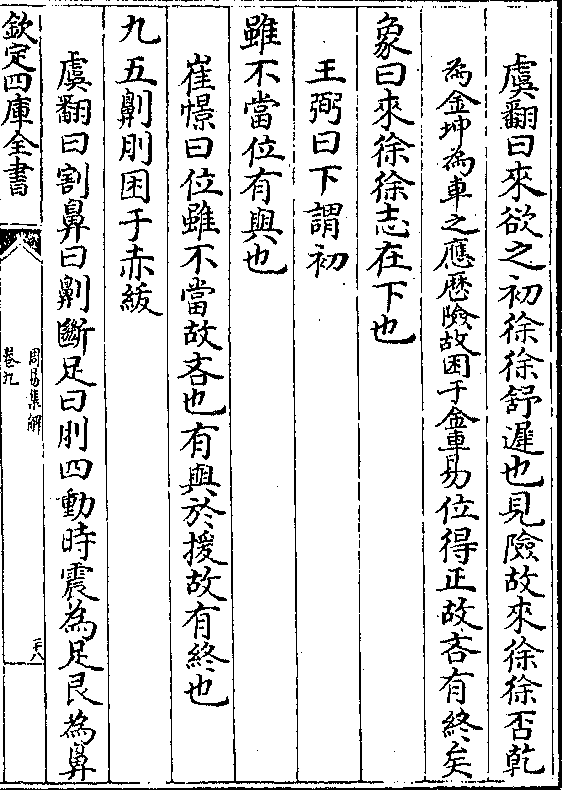 虞翻曰來欲之初徐徐舒遲也見險故來徐徐否乾
為金坤為車之應歷險故困于金車易位得正故吝有終矣
象曰來徐徐志在下也
王弼曰下謂初
雖不當位有與也
崔憬曰位雖不當故吝也有與於援故有終也
九五劓刖困于赤紱
虞翻曰割鼻曰劓斷足曰刖四動時震為足艮為鼻
欽定四庫全書
周易集解
卷九
二十八